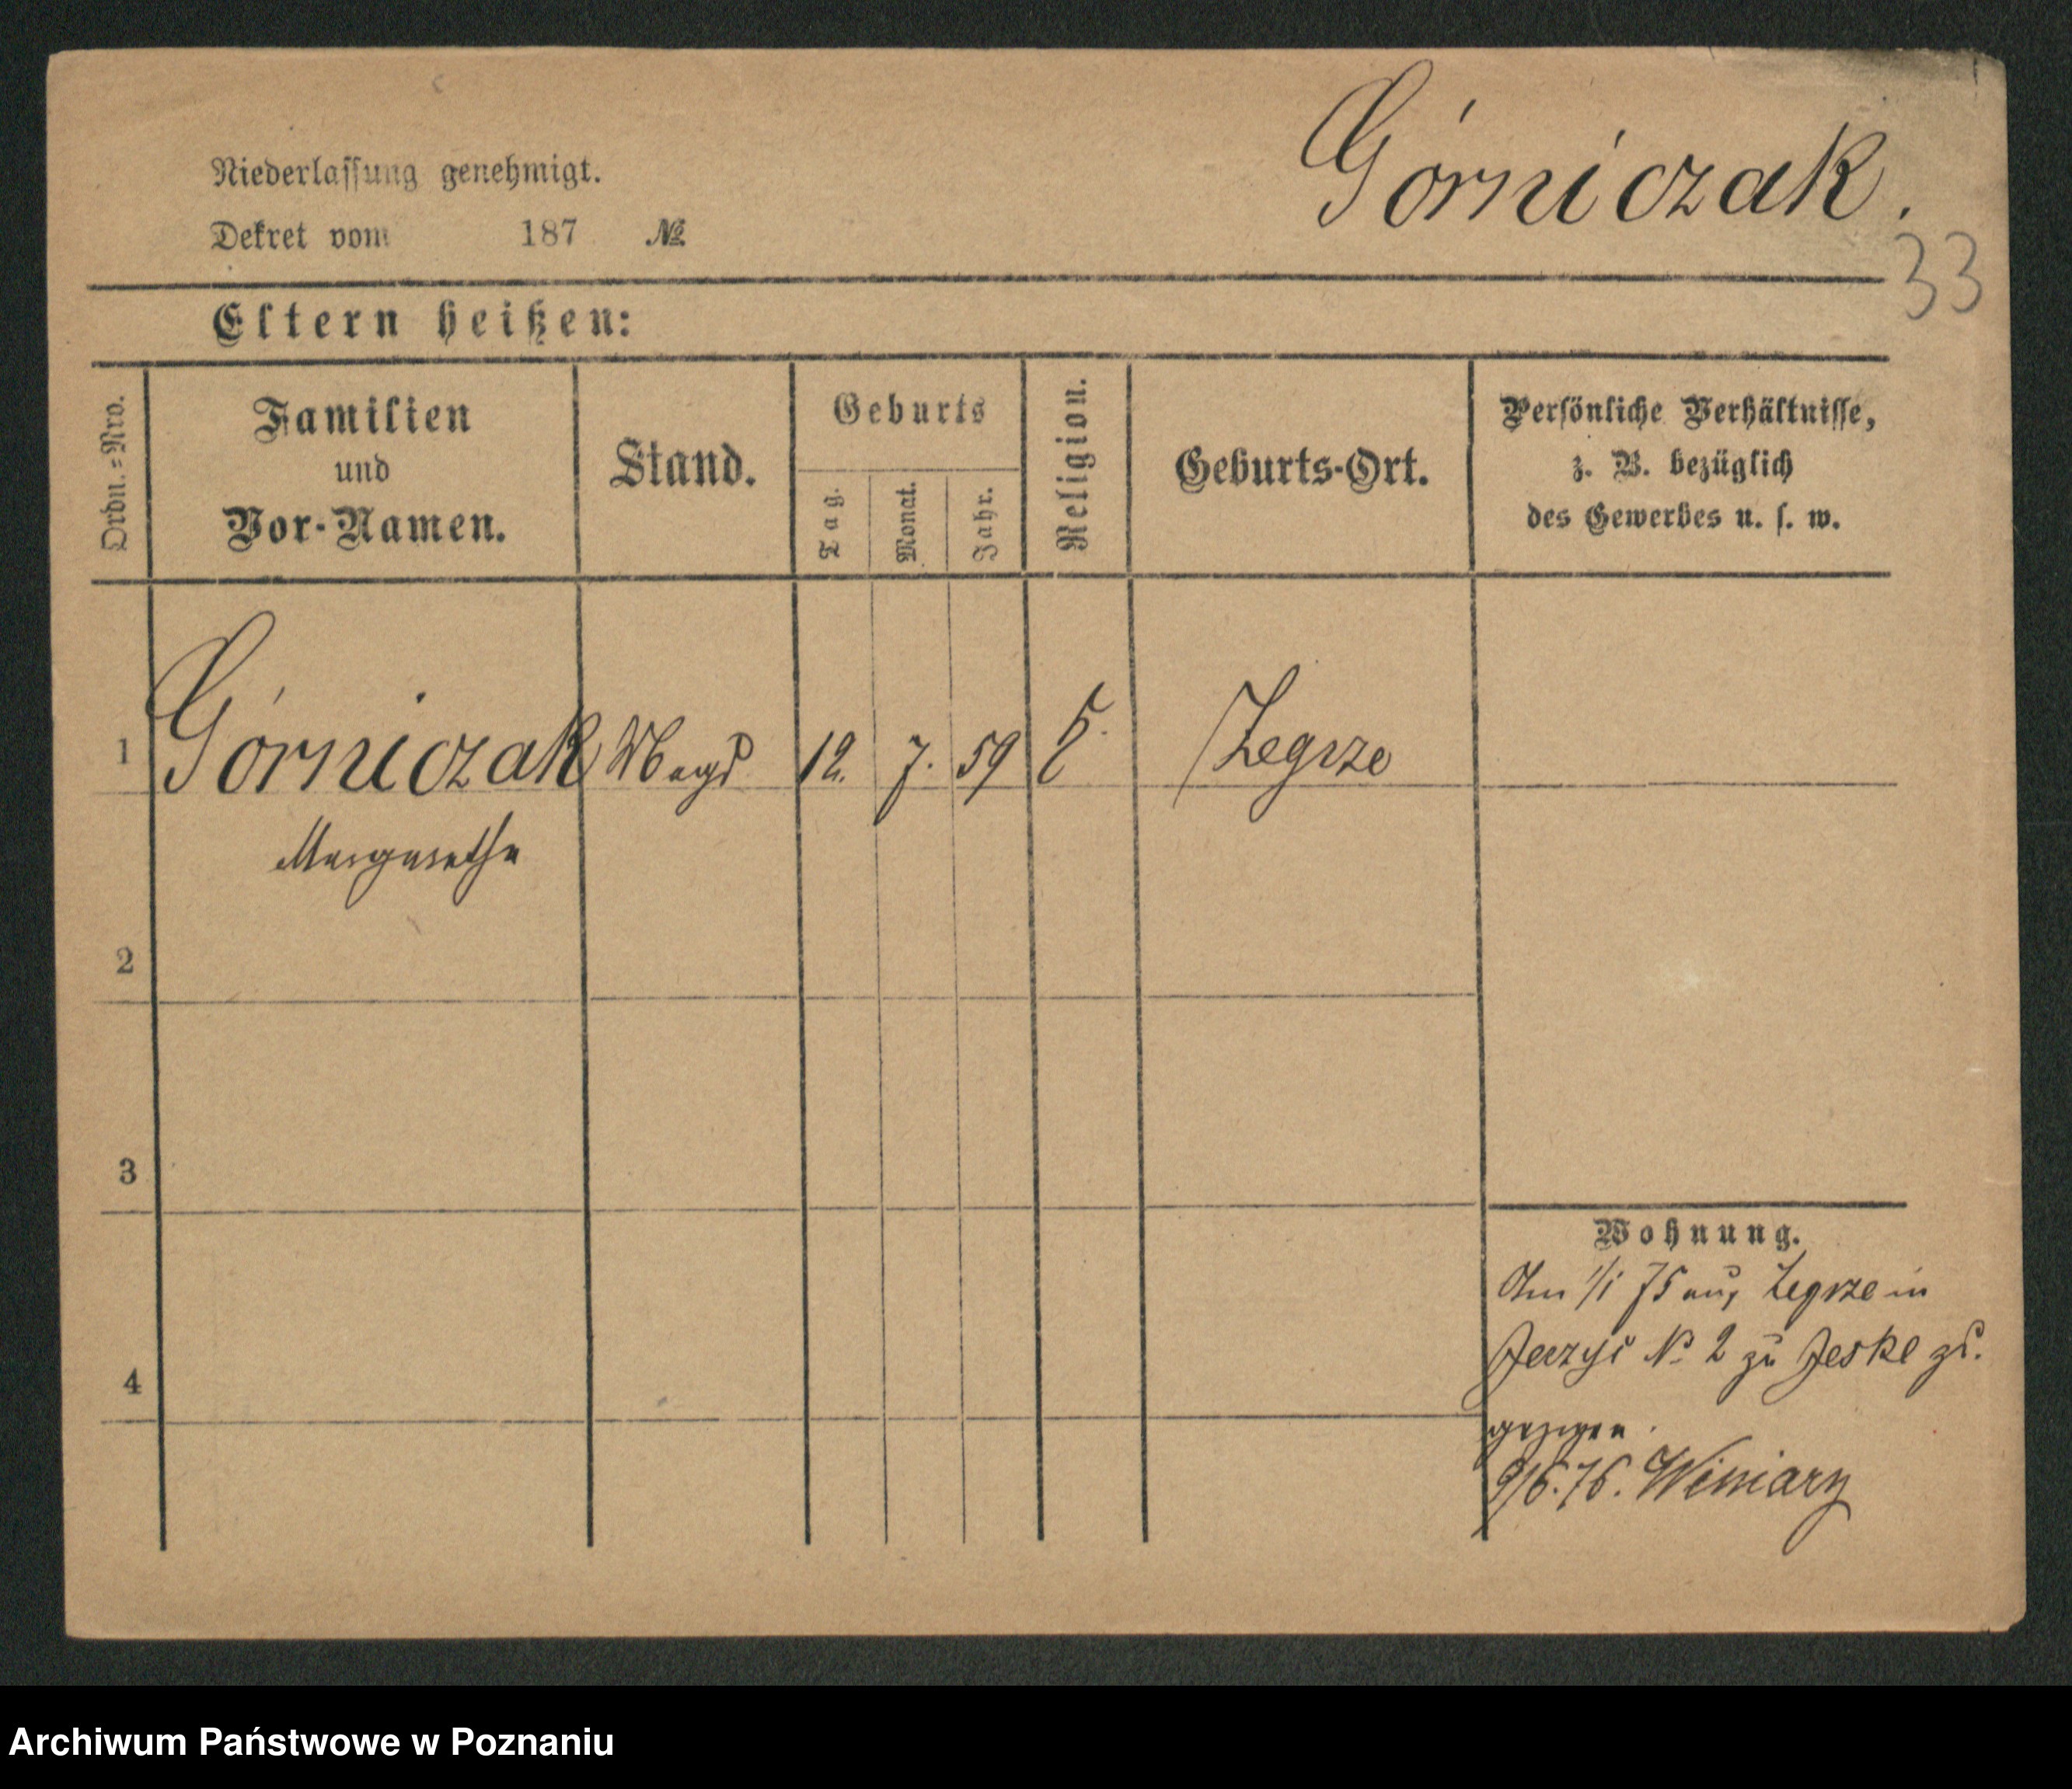 Górniczak.
Niederlassung genehmigt.
Dekret vom 187 №
33
Eltern heißen:
Ordn.=Nro.
Familien
und
Vor-Namen.
Stand.
Geburts
Tag.
Monat.
Jahr.
Religion.
Geburts-Ort.
Persönliche Verhältnisse,
z. B. bezüglich
des Gewerbes u. s. w.
1 Górniczak Magd 12. 7. 59 Zegrze
Margarethe
2
3
4
Wohnung.
Am 1/1 75 aus Zegrze in
№ 2 zu Jeske
gezogen.
9/6.76. Winiary
Archiwum Państwowe w Poznaniu